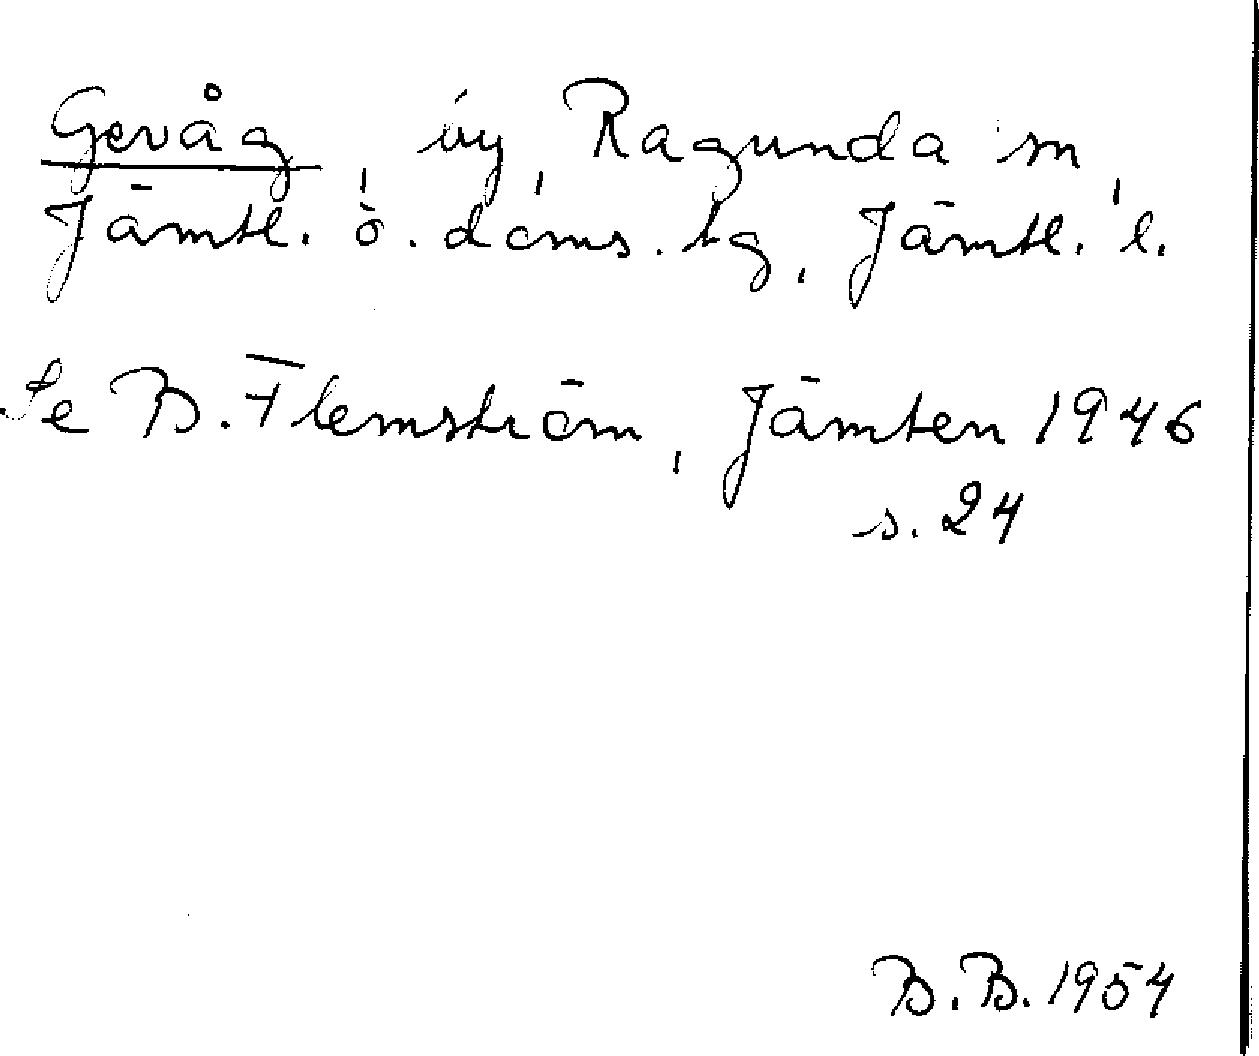 Gevåg, by, Ragunda sn,
Jämtl. ö. doms.hg, Jämtl. l.
Se B. Flemström, Jämten 1946
s. 24
B.B. 1954